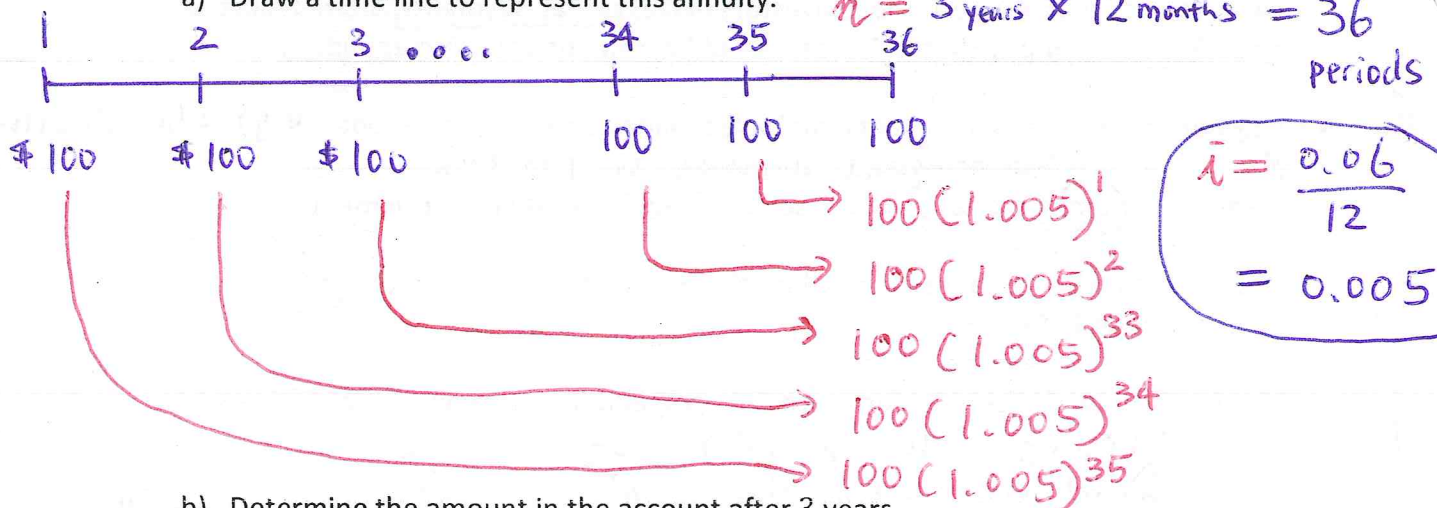 a) Draw a time line to represent this annuity.
n = 3 years × 12 months = 36
periods
1 2 3 .... 34 35 36
$100 $100 $100 100 100 100
100(1.005)^1
100(1.005)^2
100(1.005)^33
100(1.005)^34
100(1.005)^35
i = 0.06
12
= 0.005
b) Determine the amount in the account after 3 years.